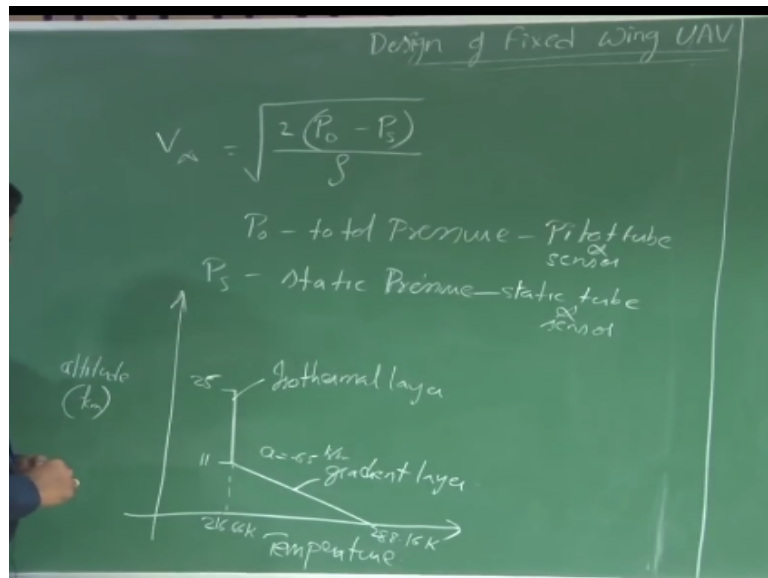 Design of Fixed Wing UAV
V∞ = √(2(P₀ - Pₛ)/ρ)
P₀ - total Pressure - Pitot tube
& sensor
Pₛ - static Pressure - static tube
& sensor
altitude
(km)
25
Isothermal layer
11
gradient layer
216.66K
288.16K
Temperature